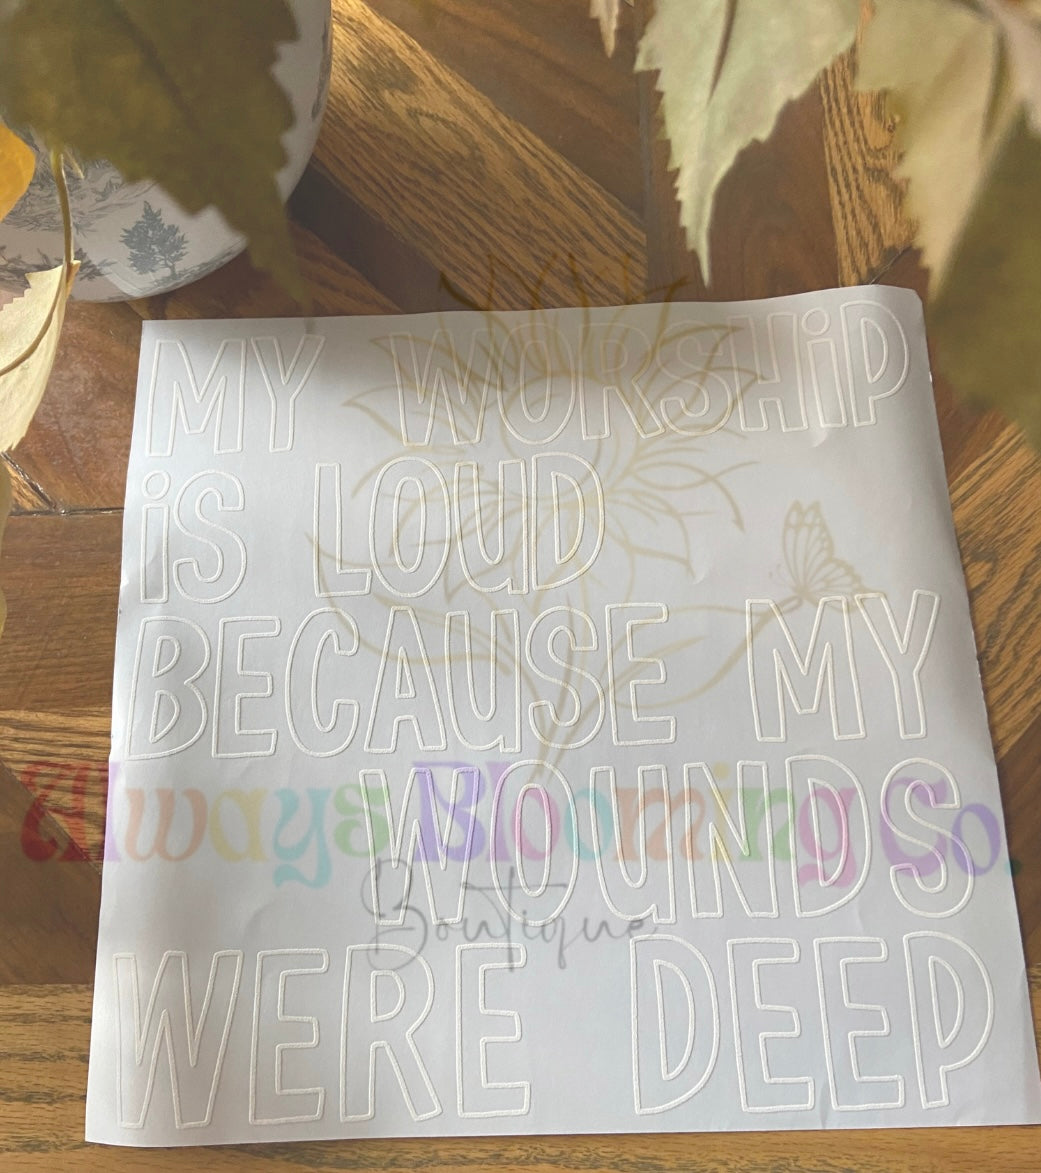 MY WORSHiP
iS LOUD
BECAUSE MY
WOUNDS
WERE DEEP
Always Blooming Co.
Boutique